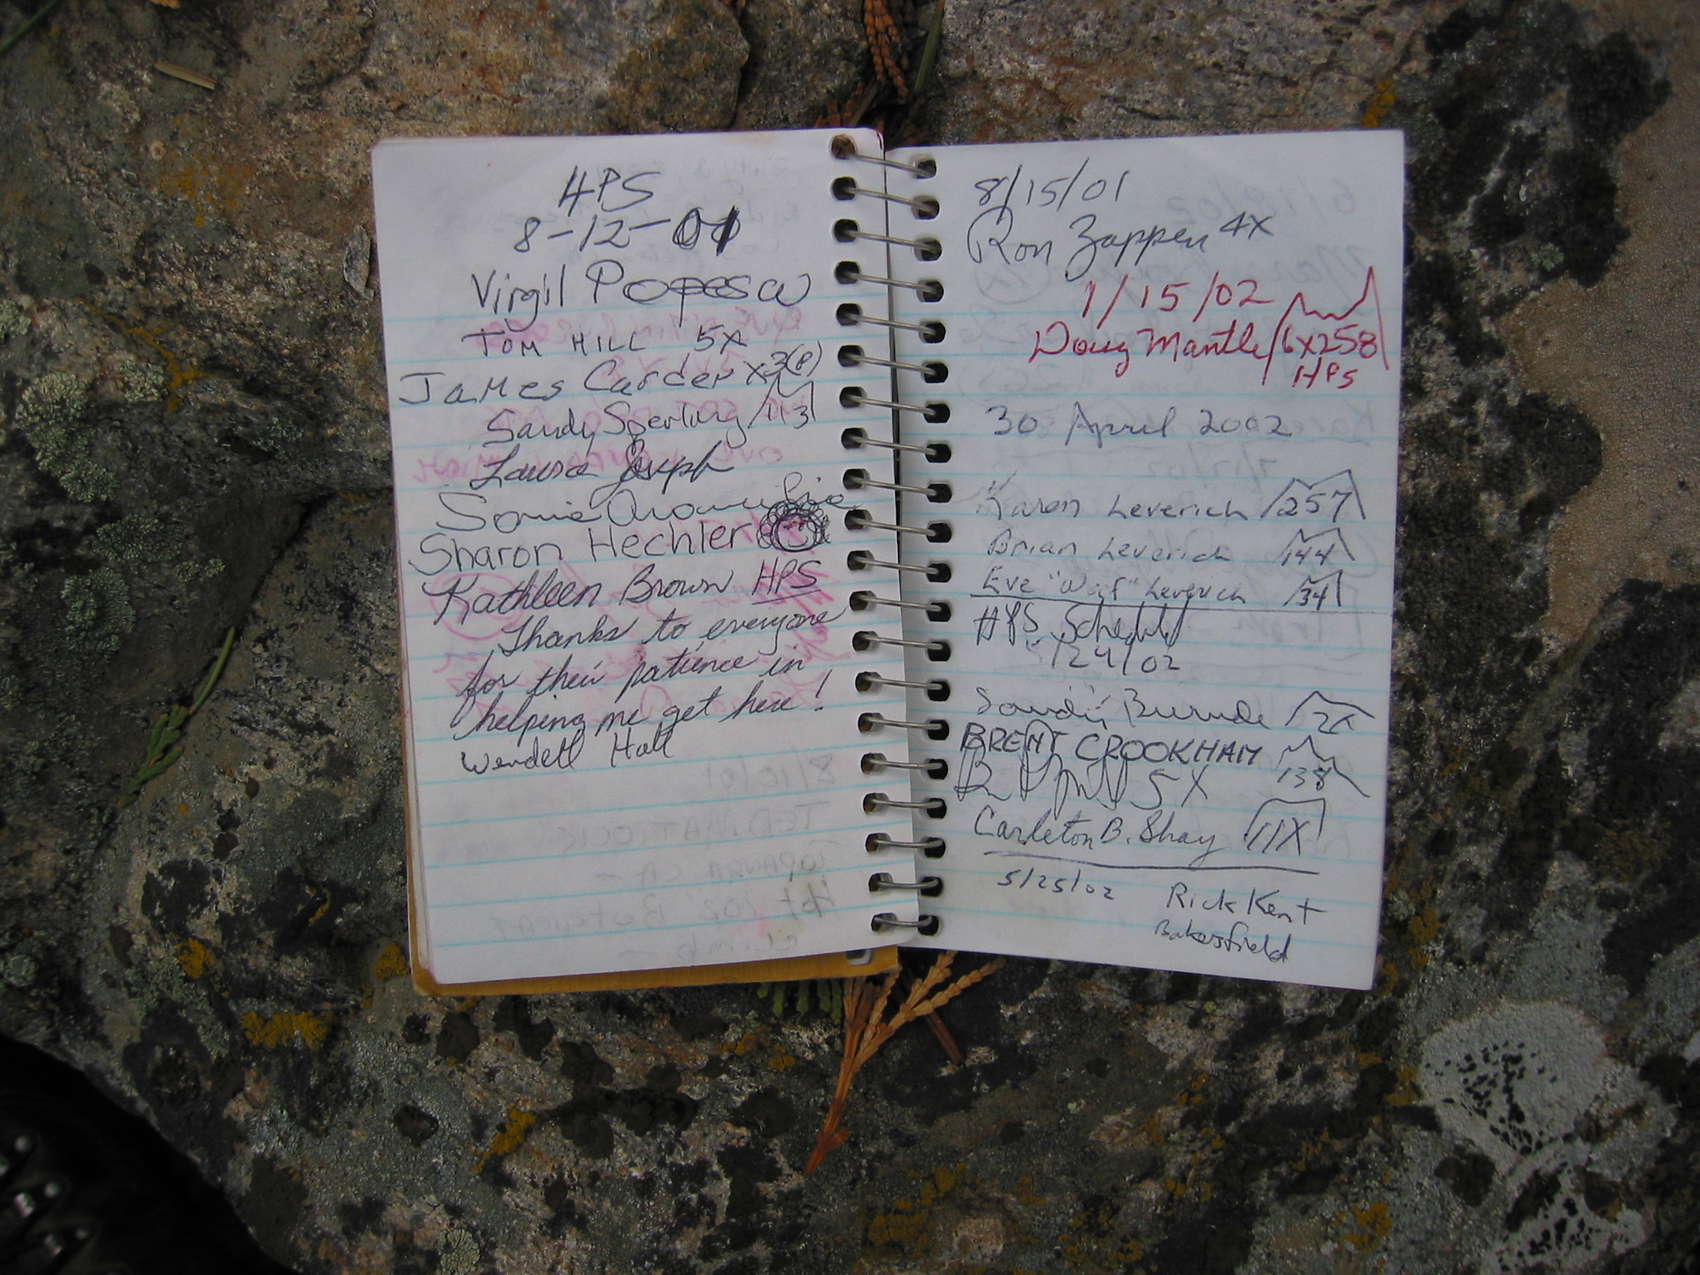 HPS
8-12-01
Virgil Popescu
TOM HILL 5X
JAMES Carder X3(P)
Sandy Sperling 113
Laura Joseph
Sonia
Sharon Hechler
Kathleen Brown HPS
Thanks to everyone
for their patience in
helping me get here!
Wendell Hall
8/15/01
Ron Zappen 4X
1/15/02
Doug Mantle 6X258
HPS
30 April 2002
Karen Leverich 257
Brian Leverich 144
Eve "Waif" Leverich 34
HPS
/24/02
Sandy Burnside 2X
BRENT CROOKHAM 138
5X
Carleton B. Shay 11X
5/25/02 Rick Kent
Bakersfield